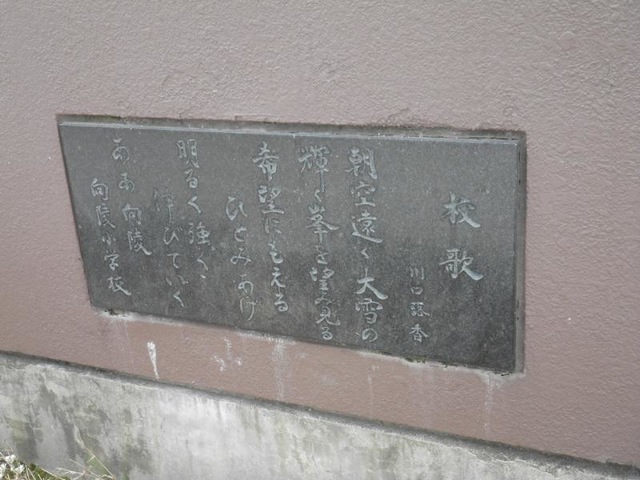 校歌
川口 香
朝空遠く大雪の
輝く峯を望み見る
希望にもえる
ひとみあげ
明るく強く
伸びていく
ああ向陵
向陵小学校